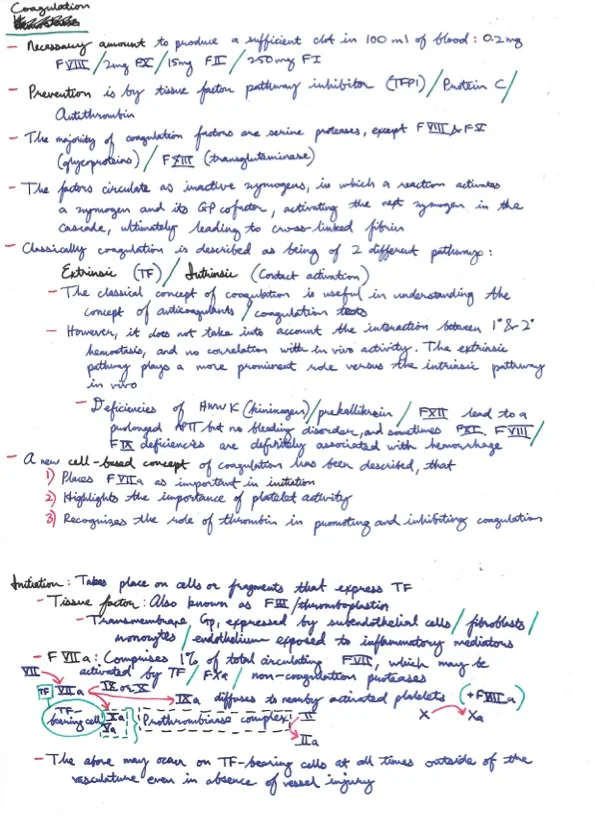 Coagulation
- Necessary amount to produce a sufficient clot in 100 ml of blood: 0.2mg
F VIII / 2mg FX / 15mg FII / 250mg FI
- Prevention is by tissue factor pathway inhibitor (TFPI) / Protein C /
Antithrombin
- The majority of coagulation factors are serine proteases, except F VIII & F V
(glycoproteins) / F XIII (transglutaminase)
- The factors circulate as inactive zymogens, in which a reaction activates
a zymogen and its GP cofactor, activating the next zymogen in the
cascade, ultimately leading to cross-linked fibrin
- Classically coagulation is described as being of 2 different pathways:
Extrinsic (TF) / Intrinsic (Contact activation)
- The classical concept of coagulation is useful in understanding the
concept of anticoagulants / coagulation tests
- However, it does not take into account the interaction between 1° & 2°
hemostasis, and no correlation with in vivo activity. The extrinsic
pathway plays a more prominent role versus the intrinsic pathway
in vivo
- Deficiencies of HMWK (kininogen) / prekallikrein / FXII lead to a
prolonged but no bleeding disorder, and sometimes FXI. F VIII /
F IX deficiencies are definitely associated with hemorrhage
- A new cell-based concept of coagulation has been described, that
1) Places F VIIa as important in initiation
2) Highlights the importance of platelet activity
3) Recognizes the role of thrombin in promoting and inhibiting coagulation
Initiation: Takes place on cells or fragments that express TF
- Tissue factor: Also known as F III / thromboplastin
- Transmembrane Gp, expressed by subendothelial cells / fibroblasts /
monocytes / endothelium exposed to inflammatory mediators
- F VIIa: Comprises 1% of total circulating FVII, which may be
VII activated by TF / FXa / non-coagulation proteases
TF VIIa IX or X IXa diffuses to nearby activated platelets (+FVIIIa)
TF- Xa Prothrombinase complex II X Xa
bearing cell Va IIa
- The above may occur on TF-bearing cells at all times outside of the
vasculature even in absence of vessel injury